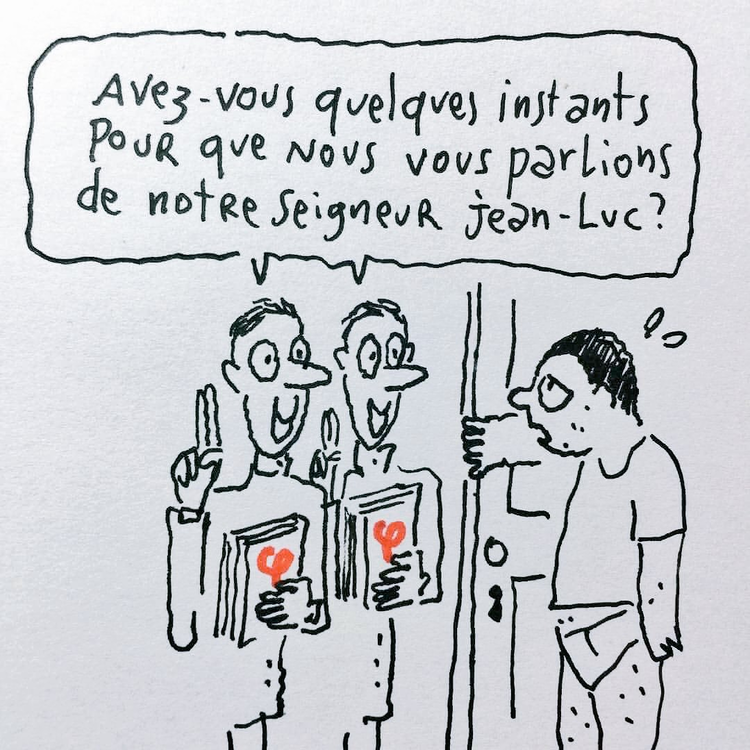 Avez-vous quelques instants
pour que nous vous parlions
de notre seigneur jean-Luc?
φ φ